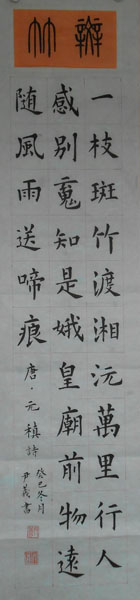 辬竹
一枝斑竹渡湘沅萬里行人
感別䰟知是娥皇廟前物遠
随風雨送啼痕
唐·元稹詩
癸巳冬月
尹義書